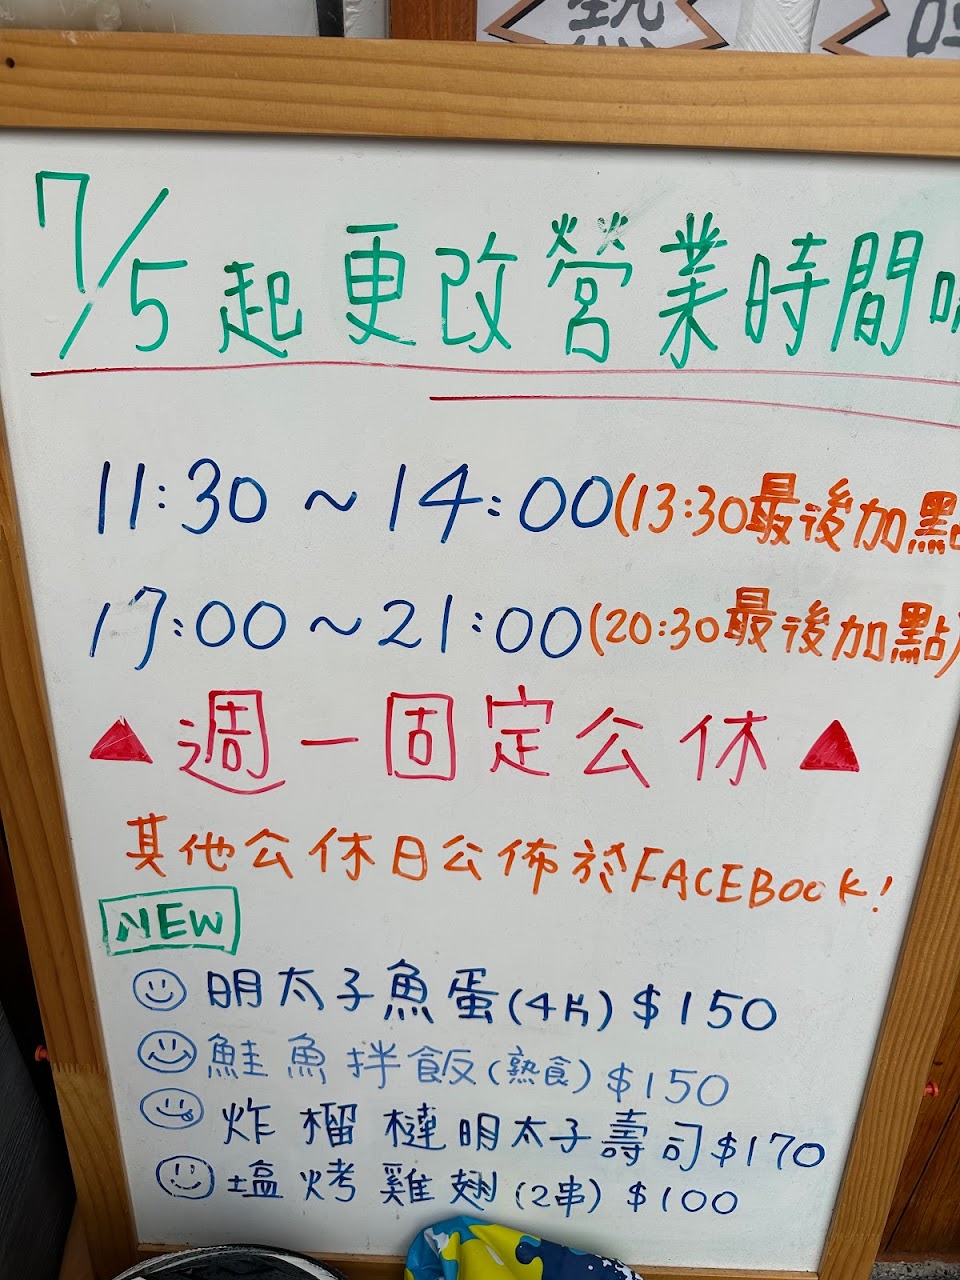 熱
7/5起更改營業時間
11:30～14:00(13:30最後加點
17:00～21:00(20:30最後加點)
▲週一固定公休▲
其他公休日公佈於FACEBOOK!
NEW
明太子魚蛋(4片)$150
鮭魚拌飯(熟食)$150
炸榴槤明太子壽司$170
塩烤雞翅(2串)$100